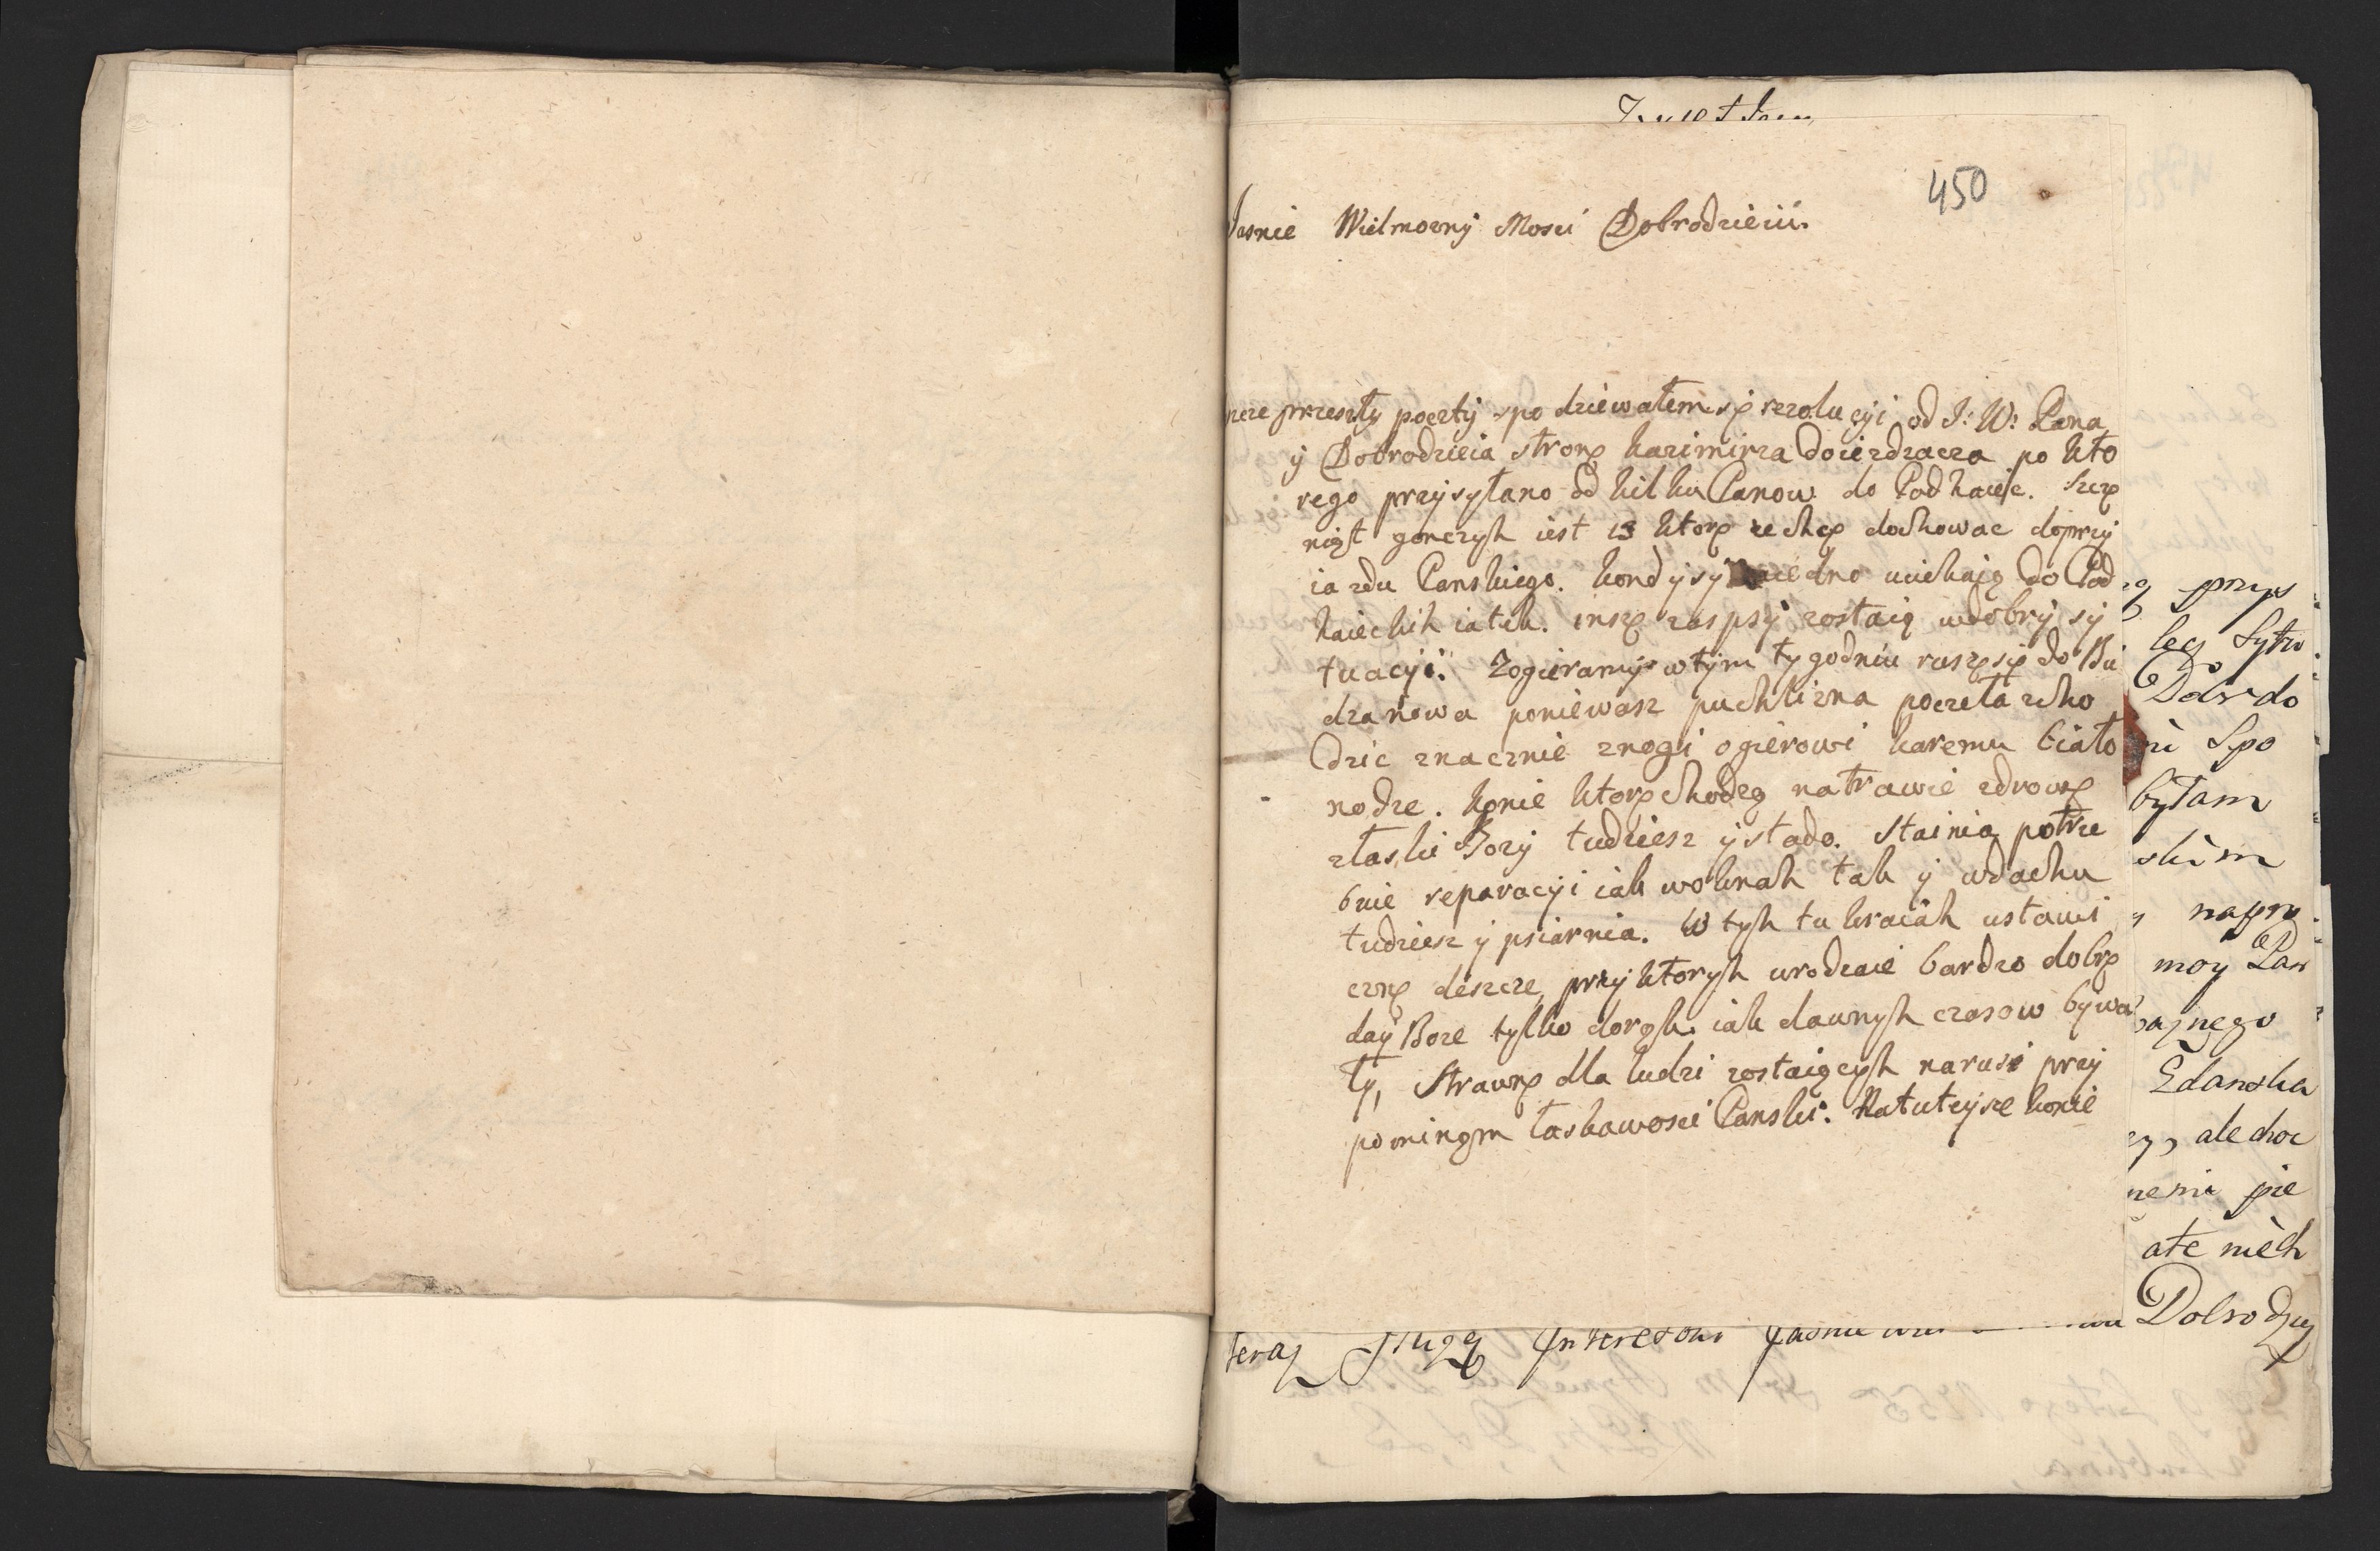 450
Jasnie Wielmozny Mosci Dobrodzieiu.
przeszły poczty spodziewałem się rezolucyi od J: W: Pana
y Dobrodzieia stronę kazimirza Doiezdzacza po kto
rego przysyłano od kilku Panow do Podhaiec. Szczę
niąt gonczyh iest 13 ktorę zechcę dochowac doprzy
iazdu Panskiego. kondysy iedno uciekaią do Pod
haieckih iatek. inszę zas psy zostaią wdobry sy
tuacyi. Zogieramy wtym tygodniu ruszę się do Bu
dzanowa poniewasz puchlizna poczeła scho
dzic znacznie znogi ogierowi karemu biało
nodze. konie ktorę chodzą natrawie zdrowę
złaski Bozy tudziesz y stado. Stainia potrze
buie reparacyi iak woknah tak y wdachu
tudziesz y psiarnia. W tyh tu kraiah ustawi
cznę deszcze, przy ktoryh urodzaie bardzo dobrę
day Boze tylko dorgh. iak dawnyh czasow bywa
ły, Strawnę dla ludzi zostaiącyh narusi przy
pominąm łaskawosci Panski. Natuteysze konie
przys
lecz
Do
Spo
byłam
skim
napry
moy Pan
Gdanska
ale choc
pie
ate niech
teraz służą Interesowi Dobrodzey